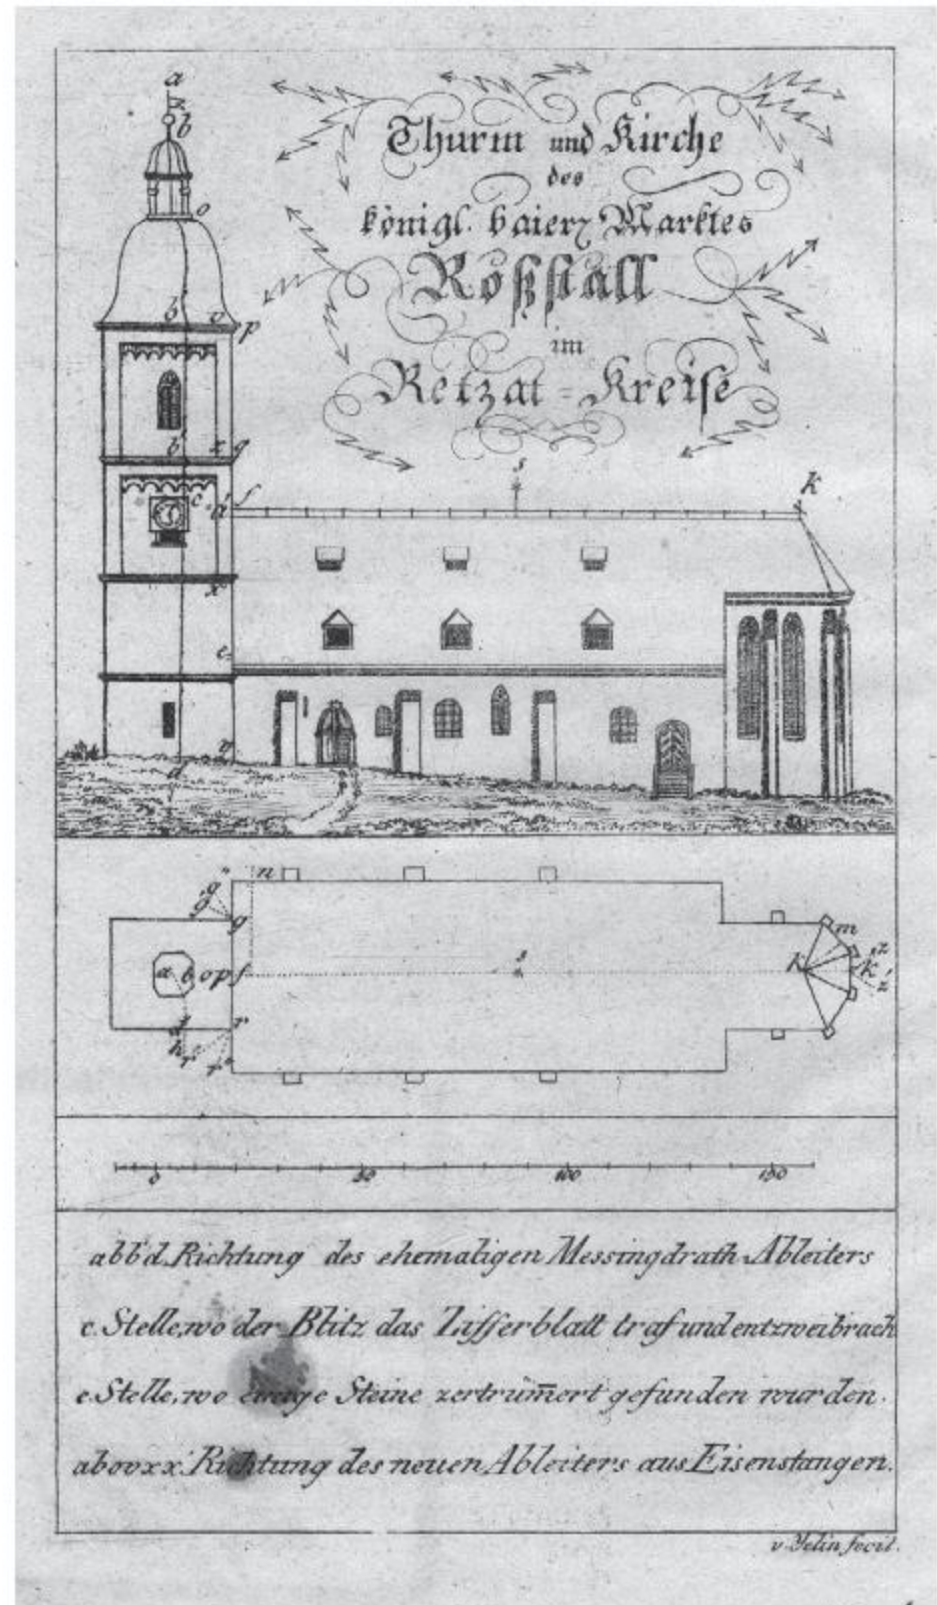 a
b
Thurm und Kirche
des
königl. baier. Marktes
Roßstall
im
Retzat=Kreise
o
b' o p
b' z g
s
k
c d f
x
e
v
d
g" n
g'
g
m
a b o p f
s
k k' z
z'
d
r
h r'
r"
0 50 100 150
abb'd. Richtung des ehemaligen Messingdrath Ableiters
c. Stelle, wo der Blitz das Zifferblatt traf und entzweibrach
e. Stelle, wo einige Steine zertrüm̅ert gefunden wurden.
abovxx'. Richtung des neuen Ableiters aus Eisenstangen.
v. Yelin fecit.